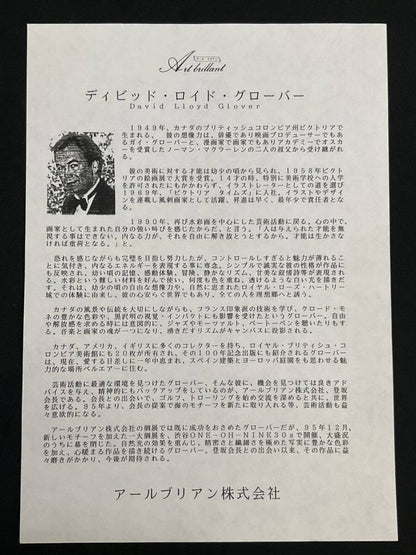 Art brillant
ディビッド・ロイド・グローバー
David Lloyd Glover
1949年、カナダのブリティッシュコロンビア州ビクトリアで
生まれる。 彼の想像力は、俳優であり映画プロデューサーでもあ
るガイ・グローバーと、漫画家で画家でもありアカデミーでオスカ
ーを受賞したノーマン・マクラーレンの二人の叔父から受け継がれ
る。
彼の美術に対する才能は幼少の頃から見られ、1958年ビクト
リアの絵画展で大賞を受賞。14才の時、特別に美術学校への入学
を許可されたにもかかわらず、イラストレーターとしての道を選び
1969年、「ビクトリア タイムズ」に入社、イラストやデザイ
ンを連載し風刺画家として活躍、昇進は早く、最年少で責任者とな
る。
1990年、再び水彩画を中心にした芸術活動に戻る。心の中で、
画家として生まれた自分の強い叫びを感じたからだ、と言う。「人は与えられた才能を無
視する事はできない、内なる力が、それを自由に解き放とうとするから。才能は生かさな
ければ重荷となる。」と。
恐れを感じながらも完璧を目指し努力したが、コントロールしすぎると魅力が薄れるこ
とに気付き、内なるエネルギーを表現する事に専念。シンプルで誠実な彼の性格が作品に
も反映され、幼い頃の記憶、感動体験、冒険、静かなリズム、甘美な叙情詩等が表現され
る。水彩という難しい材料を好んで使い、何度も色を重ね、透けるような白い光を描きだ
す。それは、幼少の頃の自由な想像力や、自然に恵まれたロイヤル・ローズ・ハートリー
城での体験に由来し、彼の心安らぐ世界でもあり、全ての人を理想郷へと誘う。
カナダの風景や伝統を大切にしながらも、フランス印象派の技術を学び、クロード・モ
ネの豊かな色彩や、黒沢明の視覚・インパクトにも影響を受けたというグローバー。自由
や解放感を求める時には意図的に、ジャズやモーツァルト、ベートーベンを聴いたりもす
る。音楽と画家の魂が一つになり、湧きだすリズムがキャンバスに投影される。
カナダ、アメリカ、イギリスに多くのコレクターを持ち、ロイヤル・ブリティシュ・コ
ロンビア美術館にも20枚が所有され、その100年記念出版にも紹介されるグローバー
は、現在、愛する日差しに一年中恵まれ、スペイン建築とヨーロッパ庭園をも思わせる魅
力的な場所ベルエアーに住む。
芸術活動に最適な環境を見つけたグローバー。そんな彼に、機会を見つけては良きアド
バイスを与え、精神的にもバックアップをしているのが、アールブリアン株式会社、登坂
会長である。会長との出会いで、ゴルフ、トローリングを始め交流を深めると共に、世界
を広げる。95年より、会長の提案で海のモチーフを新たに取り入れる等、芸術活動も益
々意欲的になる。
アールブリアン株式会社の個展では既に成功をおさめたグローバーだが、95年12月、
新しいモチーフを加えた一大個展を、渋谷ONE－OH－NINE30sで開催、大盛況
のうちに幕を閉じた。自然光の効果を重んじ、精密さと繊細さを極めた写実に豊かな色彩
を加え、心暖まる作品を描き続けるグローバー。登坂会長との出会い以来、その作品に益
々磨きがかかり、今後が期待される。
アールブリアン株式会社